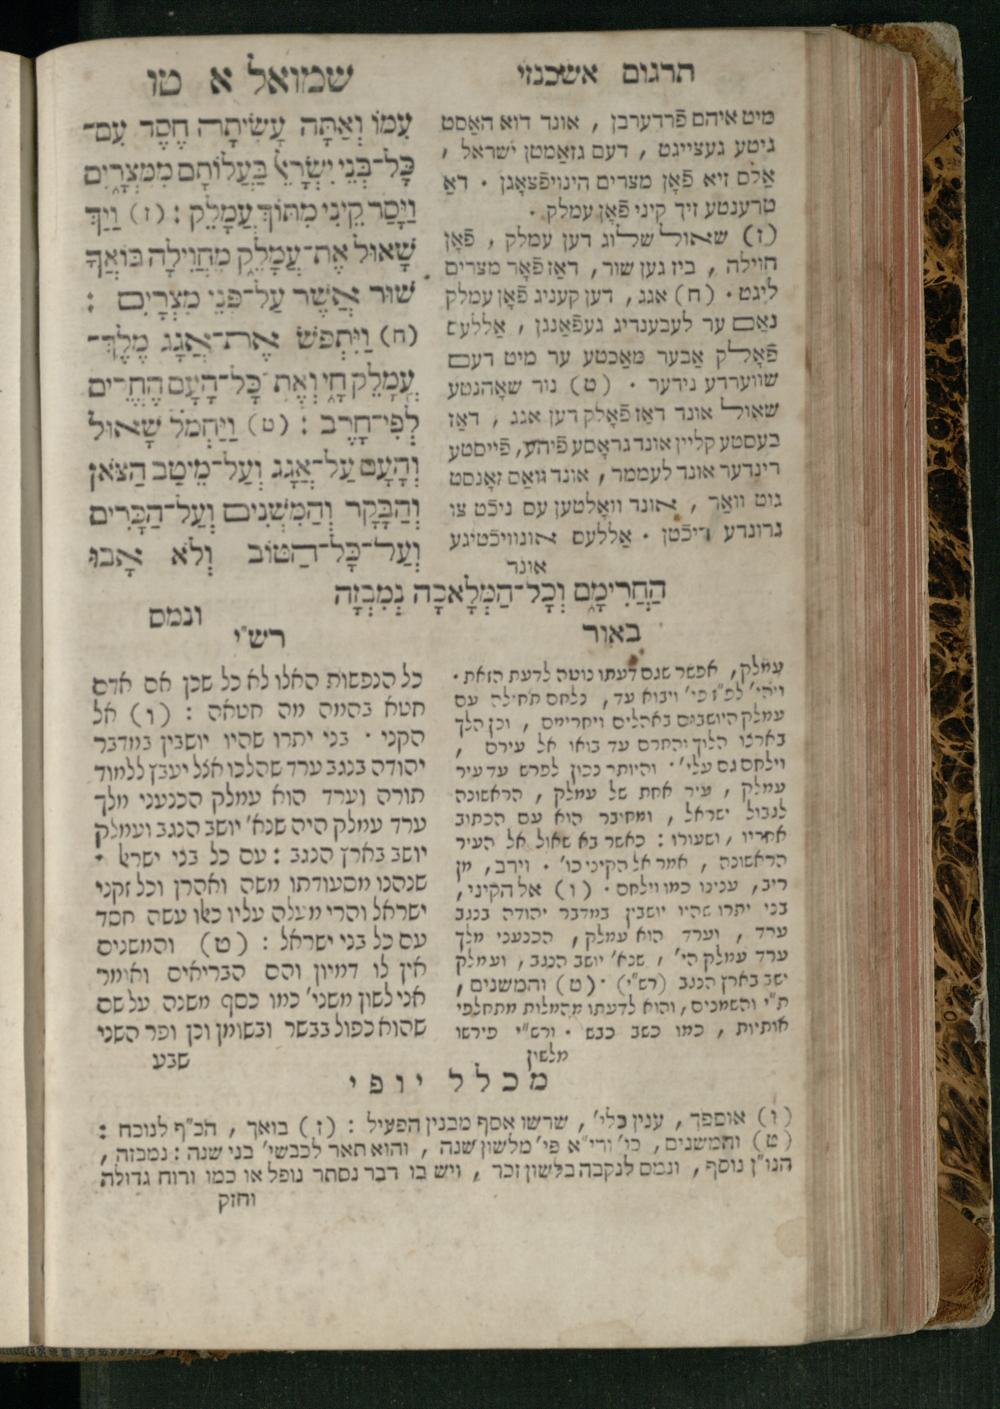 תרגום אשכנזי
שמואל א טו
עִמוֹ וְאַתָּה עָשִׂיתָה חֶסֶד עִם־
כָּל־בְּנֵי יִשְׂרָאֵל בַּעֲלוֹתָם מִמִּצְרָיִם
וַיָּסַר קֵינִי מִתּוֹךְ עֲמָלֵק : (ז) וַיַּךְ
שָׁאוּל אֶת־עֲמָלֵק מֵחֲוִילָה בּוֹאֲךָ
שׁוּר אֲשֶׁר עַל־פְּנֵי מִצְרָיִם :
(ח) וַיִּתְפֹּשׂ אֶת־אֲגַג מֶלֶךְ־
עֲמָלֵק חָי וְאֶת־כָּל־הָעָם הֶחֱרִים
לְפִי־חָרֶב : (ט) וַיַּחְמֹל שָׁאוּל
וְהָעָם עַל־אֲגָג וְעַל־מֵיטַב הַצֹּאן
וְהַבָּקָר וְהַמִּשְׁנִים וְעַל־הַכָּרִים
וְעַל־כָּל־הַטּוֹב וְלֹא אָבוּ
הַחֲרִימָם וְכָל־הַמְּלָאכָה נְמִבְזָה
ונמס
מיט איהם פֿרדערבן , אונד דוא האַסט
גיטע געצייגט , דעם גזאַמטן ישראל ,
אַלס זיא פֿאָן מצרים הינויפֿצאָגן . דאַ
טרענטע זיך קיני פֿאָן עמלק .
(ז) שאול שלוג דען עמלק , פֿאָן
חוילה , ביז געגן שור , דאַז פֿאָר מצרים
ליגט . (ח) אגג , דען קעניג פֿאָן עמלק
נאַם ער לעבענדיג געפֿאַנגן , אַללעס
פֿאָלק אַבער מאַכטע ער מיט דעם
שווערדע נידער . (ט) נור שאָהנטע
שאול אונד דאַז פֿאָלק דען אגג , דאַז
בעסטע קליין אונד גראָסע פֿיהע , פֿייסטע
רינדער אונד לעממר , אונד וואַס זאָנסט
גיט וואַר , אונד וואָלטען עס ניכֿט צו
גרונדע ריכֿטן . אַללעס אונוויכֿטיגע
אונד
באור
עמלק, אפשר שגם דעתו נוטה לדעת הזאת .
ויהי' לפ"ז פי' ויבוא עד , נלחם תחילה עם
עמלק היושבים באהלים ויחרימם , וכן הלך
בארצו הלוך והחרם עד בואו אל עירם ,
וילחם גם עלי' . והיותר נכון לפרש עד עיר
עמלק , עיר אחת של עמלק , הראשונה
לגבול ישראל , ומחובר הוא עם הכתוב
אחריו , ושעורו : כאשר בא שאול אל העיר
הראשונה , אמר אל הקיני כו' . וירב , מן
ריב , ענינו כמו וילחם . (ו) אל הקיני ,
בני יתרו שהיו יושבין במדבר יהודה בנגב
ערד , וערד הוא עמלק , הכנעני מלך
ערד עמלק הי' , שנא' יושב הנגב , ועמלק
ישב בארץ הנגב (רש"י) . (ט) והמשנים ,
ת"י והשמנים , והוא לדעתו מהמלות מתחלפי
אותיות , כמו כשב כבש . ורש"י פירשו
מלשון
רש"י
כל הנפשות האלו לא כל שכן אם אדם
חטא בהמה מה חטאה : (ו) אל
הקני . בני יתרו שהיו יושבין במדבר
יהודה בנגב ערד שהלכו אצל יעבץ ללמוד
תורה וערד הוא עמלק הכנעני מלך
ערד עמלק היה שנא' יושב הנגב ועמלק
יושב בארץ הנגב : עם כל בני ישראל .
שנהנו מסעודתו משה ואהרן וכל זקני
ישראל והרי מעלה עליו כאלו עשה חסד
עם כל בני ישראל : (ט) והמשנים
אין לו דמיון והם הבריאים ואומר
אני לשון משני' כמו כסף משנה על שם
שהוא כפול בבשר ובשומן וכן ופר השני
שבע
מכלל יופי
(ו) אוספך , ענין כלי' , שרשו אסף מבנין הפעיל : (ז) בואך , הכ"ף לנוכח :
(ט) והמשנים , כו' ורי"א פי' מלשון שנה , והוא תאר לכבשי' בני שנה : נמבזה ,
הנו"ן נוסף , ונמס לנקבה בלשון זכר , ויש בו דבר נסתר נופל או כמו ורוח גדולה
וחזק